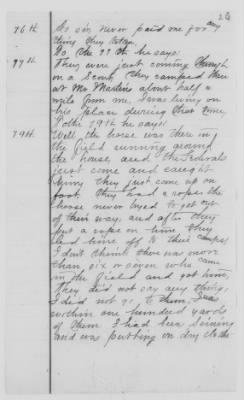 26
76th No sir, never paid me for any
thing they taken,
To the 77th he says:
77th They were just coming through
on a Scout, They camped there
at Mr Martins about half a
mile from me, I was living on
his place during that time,
To the 79th he says:
79th Well, the horse was there in
the field running around
the house, and the Federals
just come and caught
him, they just come up on
foot, They had a rope, the
horse never tryed to get out
of their way, and after they
put a rope on him they
lead him off to their camps,
I don't think there was more
than six or seven who came
in the field and got him,
They did not say any thing,
I did not go to them, I was
within one hundred yards
of them I had been Seining
and was putting on dry clothes